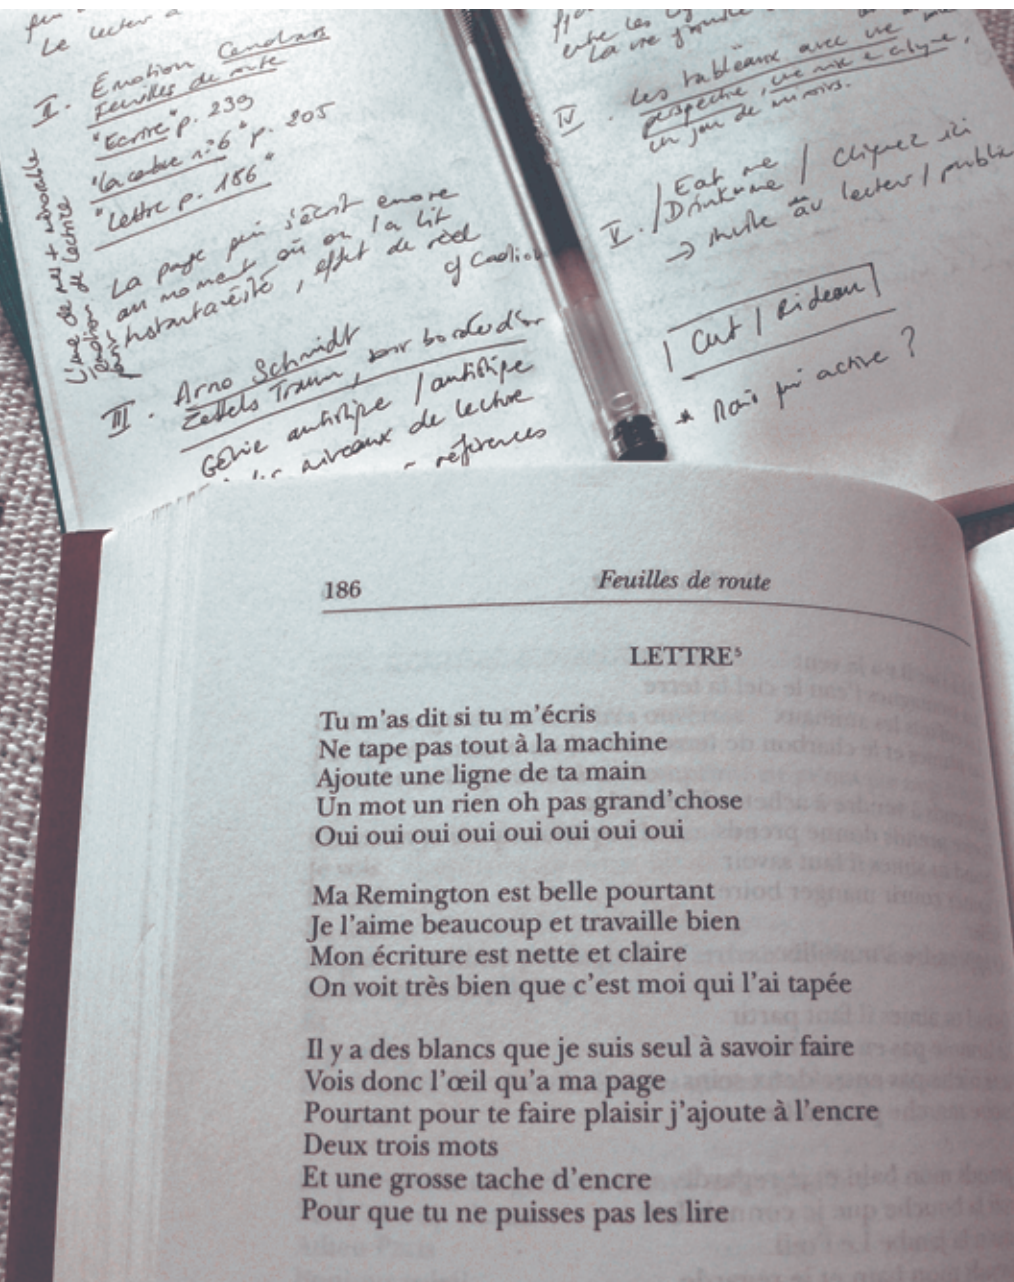 Le lecteur
II. Emotion Cendrars
Feuilles de route
"Ecrire" p. 239
"La cabine n°6" p. 205
"Lettre p. 186"
La page qui s'écrit encore
au moment où on la lit
instantanéité, effet de réel
III. Arno Schmidt
Zettels Traum, bordador
Génie antistipe / antistipe
niveaux de lecture
références
entre les
La vie
IV. Les tableaux avec une
perspective, une mise en abyme,
un jeu de miroirs.
V. / Eat me / Cliquez ici
/ Drink me
→ invite au lecteur / public
| Cut | Rideau |
* Mais qui active ?
186 Feuilles de route
LETTRE⁵
Tu m'as dit si tu m'écris
Ne tape pas tout à la machine
Ajoute une ligne de ta main
Un mot un rien oh pas grand'chose
Oui oui oui oui oui oui oui oui
Ma Remington est belle pourtant
Je l'aime beaucoup et travaille bien
Mon écriture est nette et claire
On voit très bien que c'est moi qui l'ai tapée
Il y a des blancs que je suis seul à savoir faire
Vois donc l'œil qu'a ma page
Pourtant pour te faire plaisir j'ajoute à l'encre
Deux trois mots
Et une grosse tache d'encre
Pour que tu ne puisses pas les lire